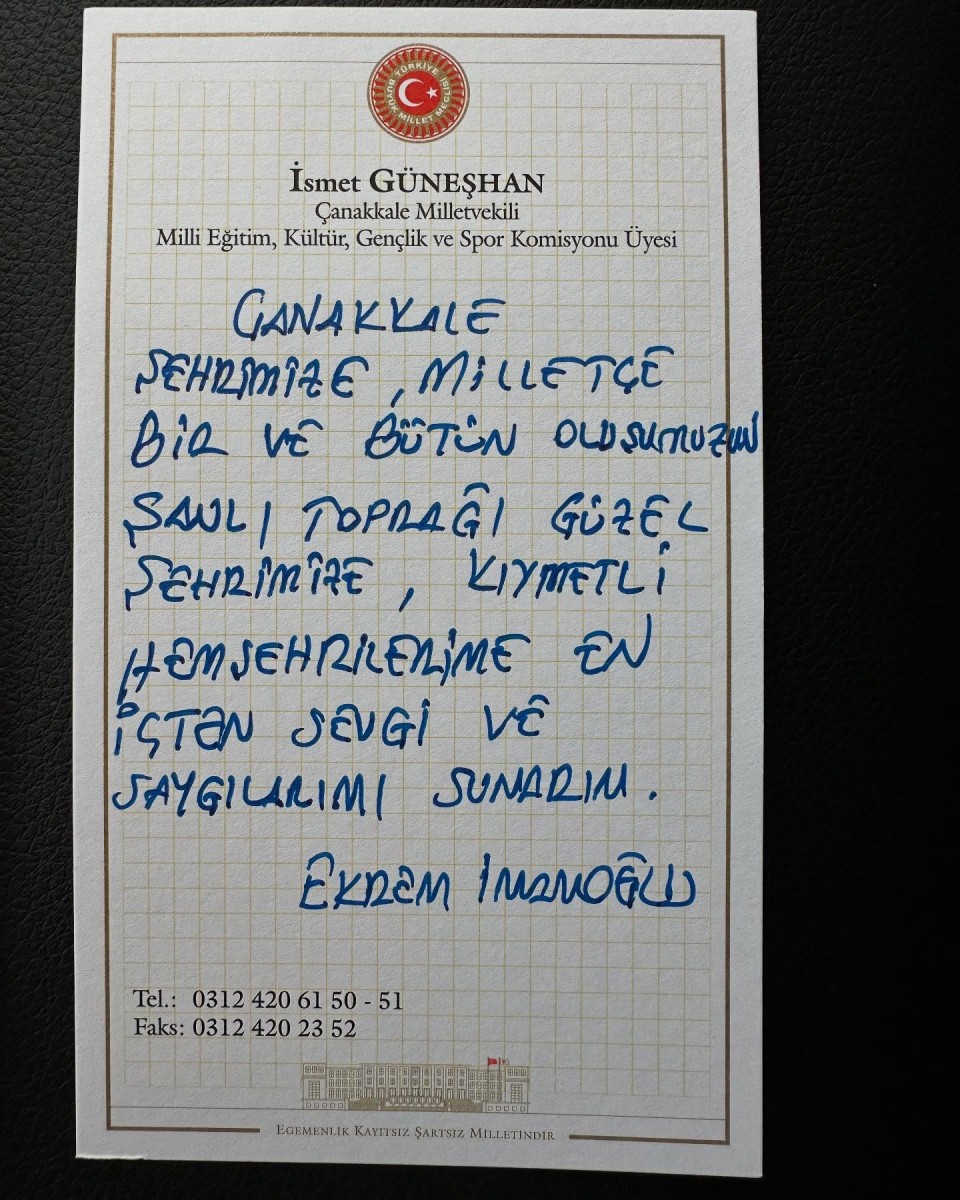 TÜRKİYE BÜYÜK MİLLET MECLİSİ
İsmet GÜNEŞHAN
Çanakkale Milletvekili
Milli Eğitim, Kültür, Gençlik ve Spor Komisyonu Üyesi
ÇANAKKALE
ŞEHRİMİZE, MİLLETÇE
BİR VE BÜTÜN OLUŞUMUZUN
ŞANLI TOPRAĞI GÜZEL
ŞEHRİMİZE, KIYMETLİ
HEMŞEHRİLERİME EN
İÇTEN SEVGİ VE
SAYGILARIMI SUNARIM.
EKREM İMAMOĞLU
Tel.: 0312 420 61 50 - 51
Faks: 0312 420 23 52
EGEMENLİK KAYITSIZ ŞARTSIZ MİLLETİNDİR